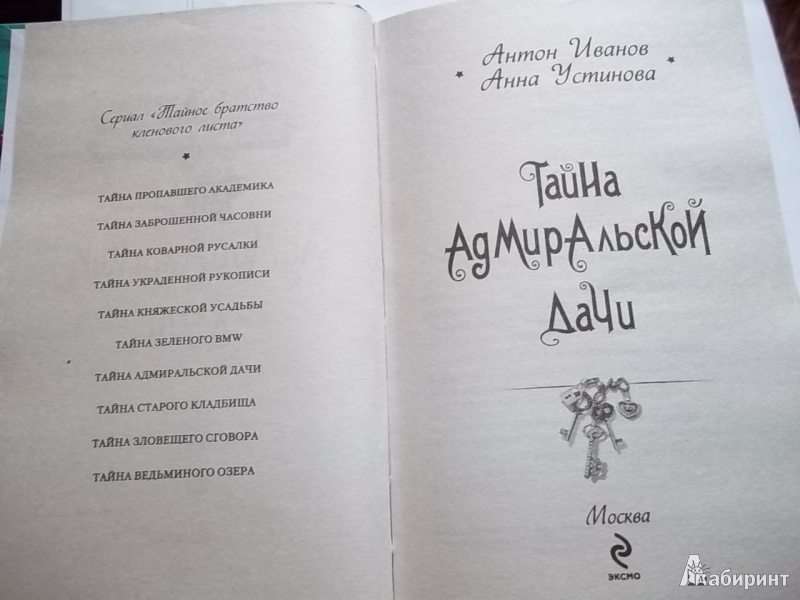 Сериал «Тайное братство
кленового листа»
ТАЙНА ПРОПАВШЕГО АКАДЕМИКА
ТАЙНА ЗАБРОШЕННОЙ ЧАСОВНИ
ТАЙНА КОВАРНОЙ РУСАЛКИ
ТАЙНА УКРАДЕННОЙ РУКОПИСИ
ТАЙНА КНЯЖЕСКОЙ УСАДЬБЫ
ТАЙНА ЗЕЛЕНОГО BMW
ТАЙНА АДМИРАЛЬСКОЙ ДАЧИ
ТАЙНА СТАРОГО КЛАДБИЩА
ТАЙНА ЗЛОВЕЩЕГО СГОВОРА
ТАЙНА ВЕДЬМИНОГО ОЗЕРА
Антон Иванов
Анна Устинова
Тайна
Адмиральской
дачи
Москва
ЭКСМО
Лабиринт